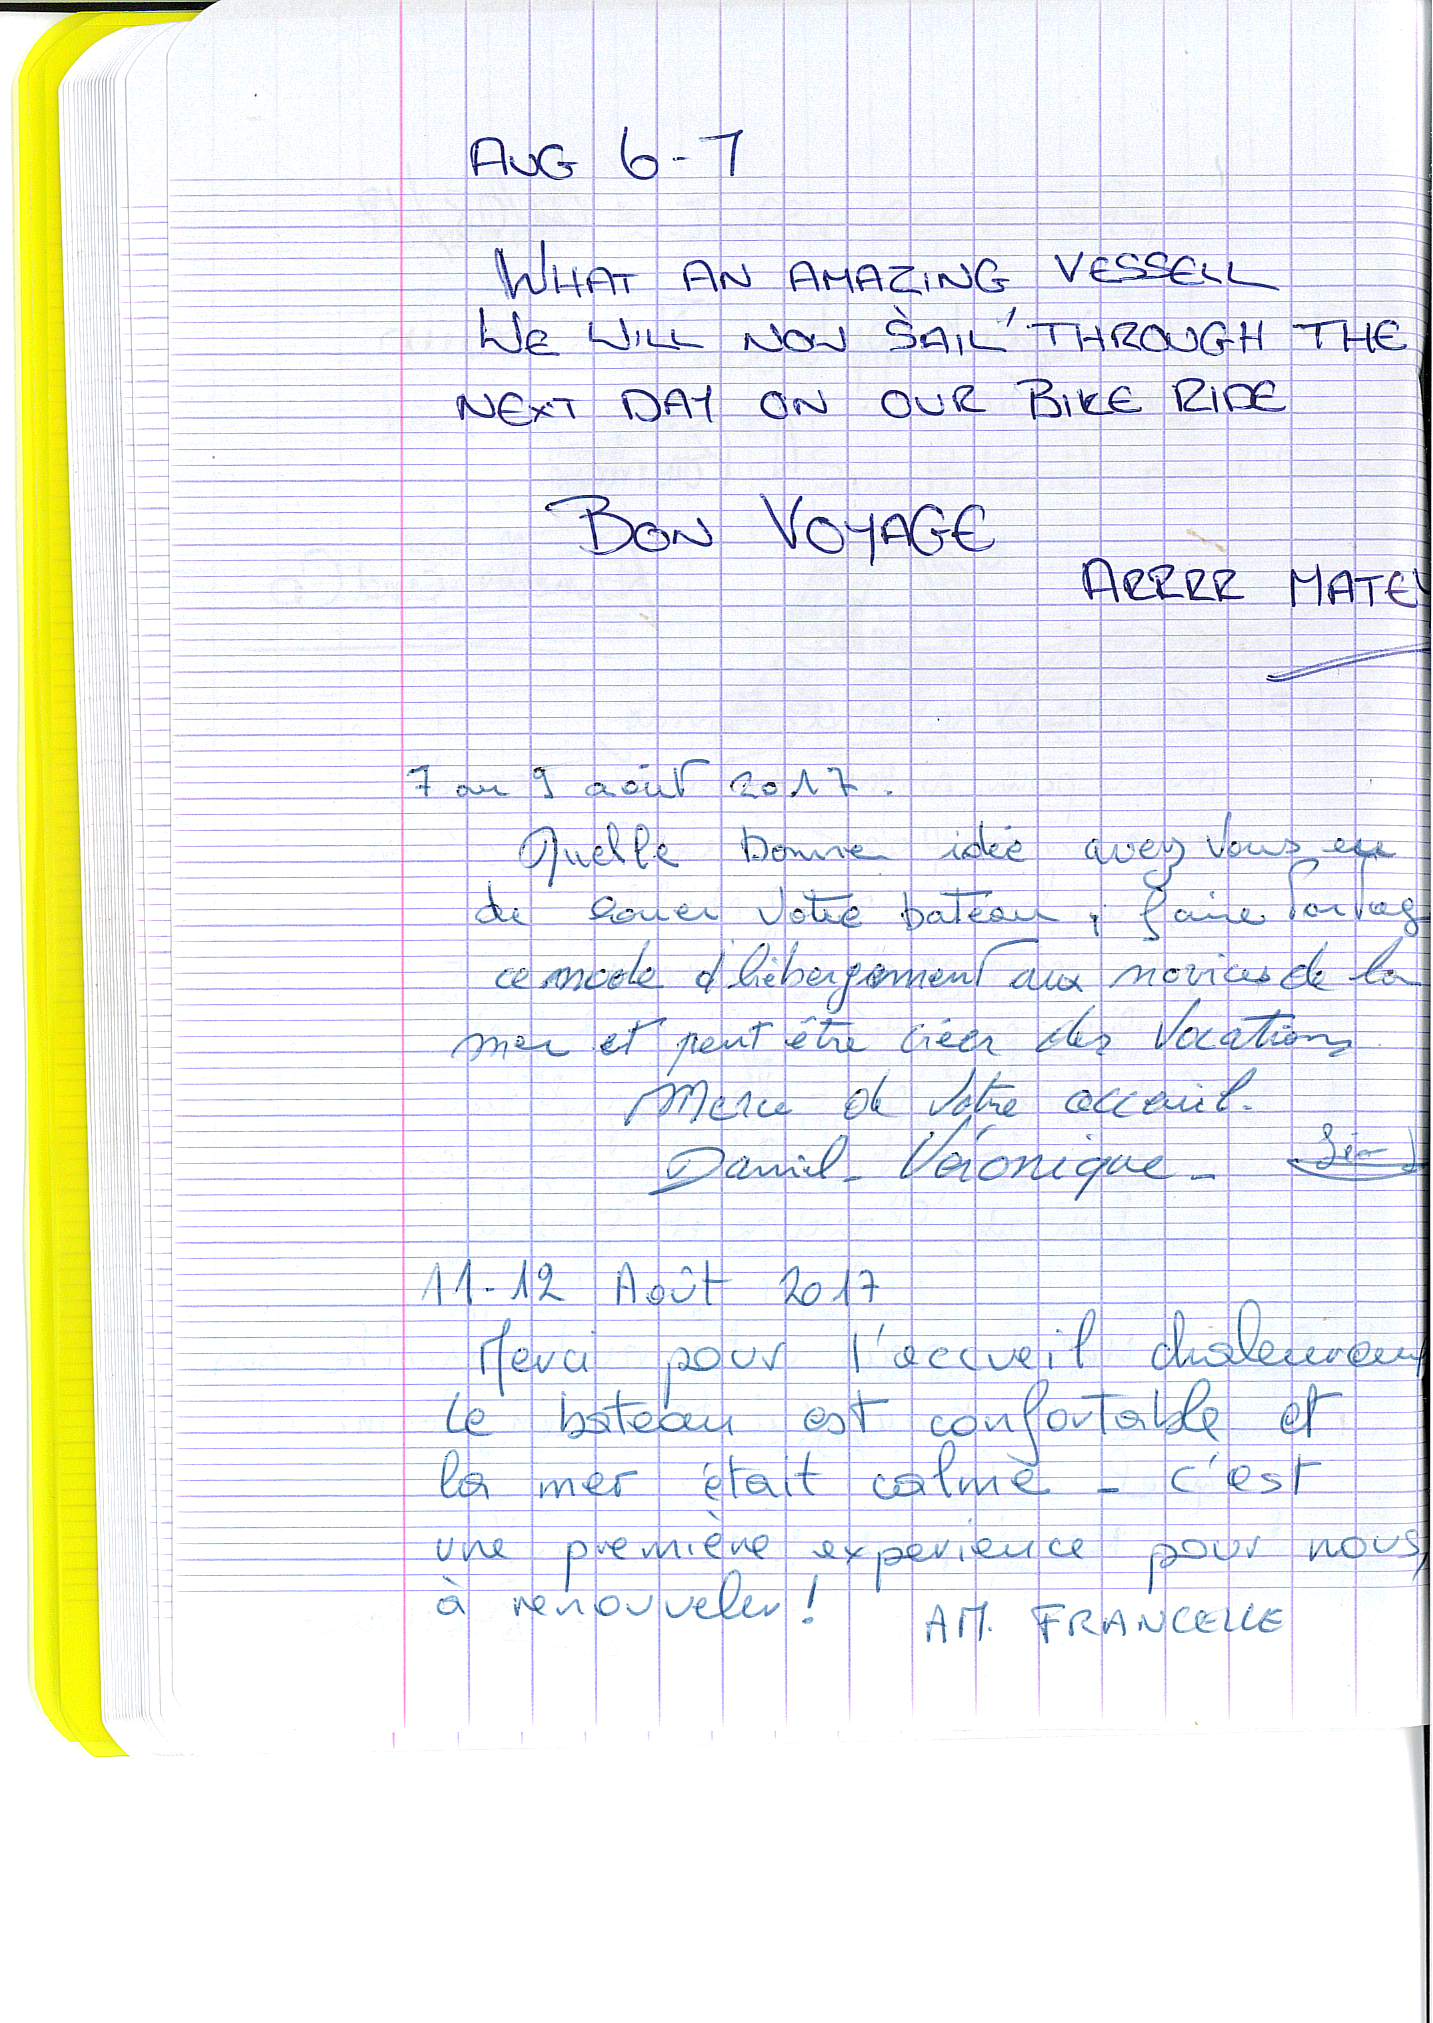 AUG 6-7
WHAT AN AMAZING VESSELL
WE WILL NOW 'SAIL' THROUGH THE
NEXT DAY ON OUR BIKE RIDE
BON VOYAGE
ARRRR MATEY
7 au 9 août 2017.
Quelle bonne idée avez vous eu
de louer votre bateau, faire partag
ce mode d'hébergement aux novices de la
mer et peut être créer des vocations
Merci de votre accueil.
Daniel - Véronique -
11-12 Août 2017
Merci pour l'accueil chaleureux
Le bateau est confortable et
la mer était calme - C'est
une première expérience pour nous,
à renouveler !
AM. FRANCELLE